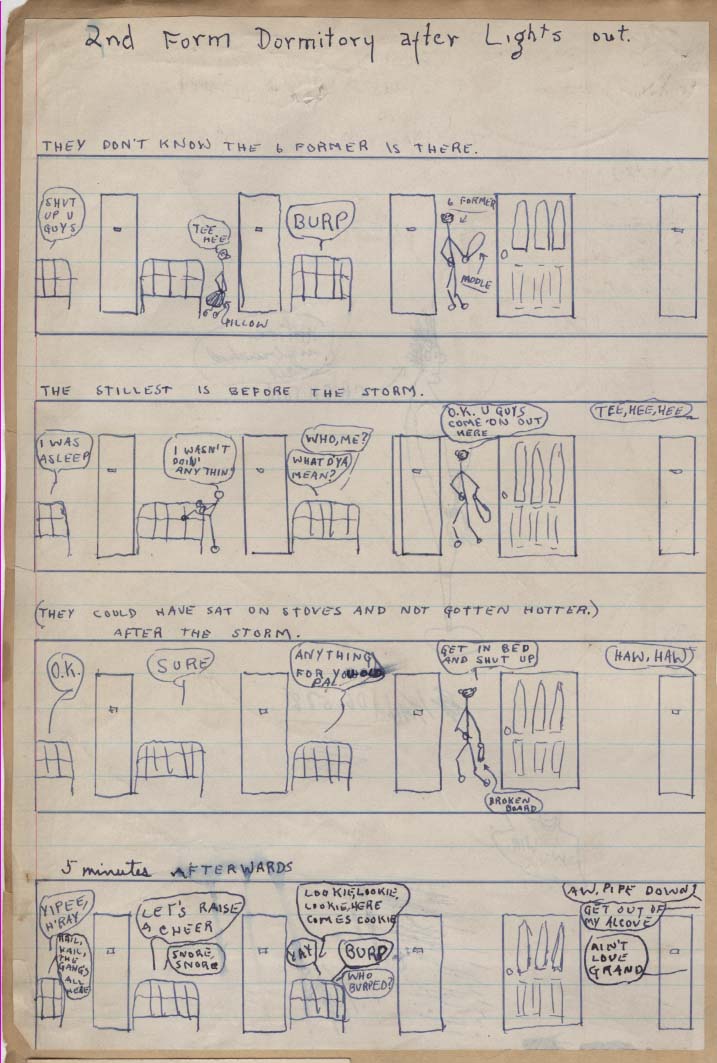 2nd Form Dormitory after Lights out.
THEY DON'T KNOW THE 6 FORMER IS THERE.
SHUT
UP U
GUYS
TEE
HEE
PILLOW
BURP
6 FORMER
PADDLE
THE STILLEST IS BEFORE THE STORM.
I WAS
ASLEEP
I WASN'T
DOIN'
ANYTHIN'
WHO, ME?
WHAT D'YA
MEAN?
O.K. U GUYS
COME ON OUT
HERE
TEE, HEE, HEE
(THEY COULD HAVE SAT ON STOVES AND NOT GOTTEN HOTTER.)
AFTER THE STORM.
O.K.
SURE
ANYTHING
FOR YOU
PAL
GET IN BED
AND SHUT UP
BROKEN
BOARD
HAW, HAW
5 minutes AFTERWARDS
YIPEE,
H'RAY
HAIL,
HAIL,
THE
GANG'S
ALL
HERE
LET'S RAISE
A CHEER
SNORE,
SNORE
LOOKIE, LOOKIE,
LOOKIE, HERE
COMES COOKIE
BURP
WHO
BURPED?
AW, PIPE DOWN!
GET OUT OF
MY ALCOVE
AIN'T
LOVE
GRAND